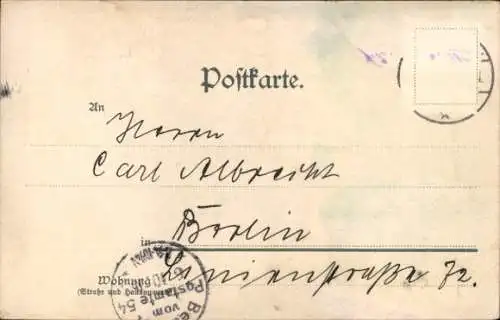 Postkarte.
An
Herrn
Carl Albrecht
in Berlin
Wohnung
(Straße und Hausnummer)
Linienstraße 72.
Be
vom
Postamte 54